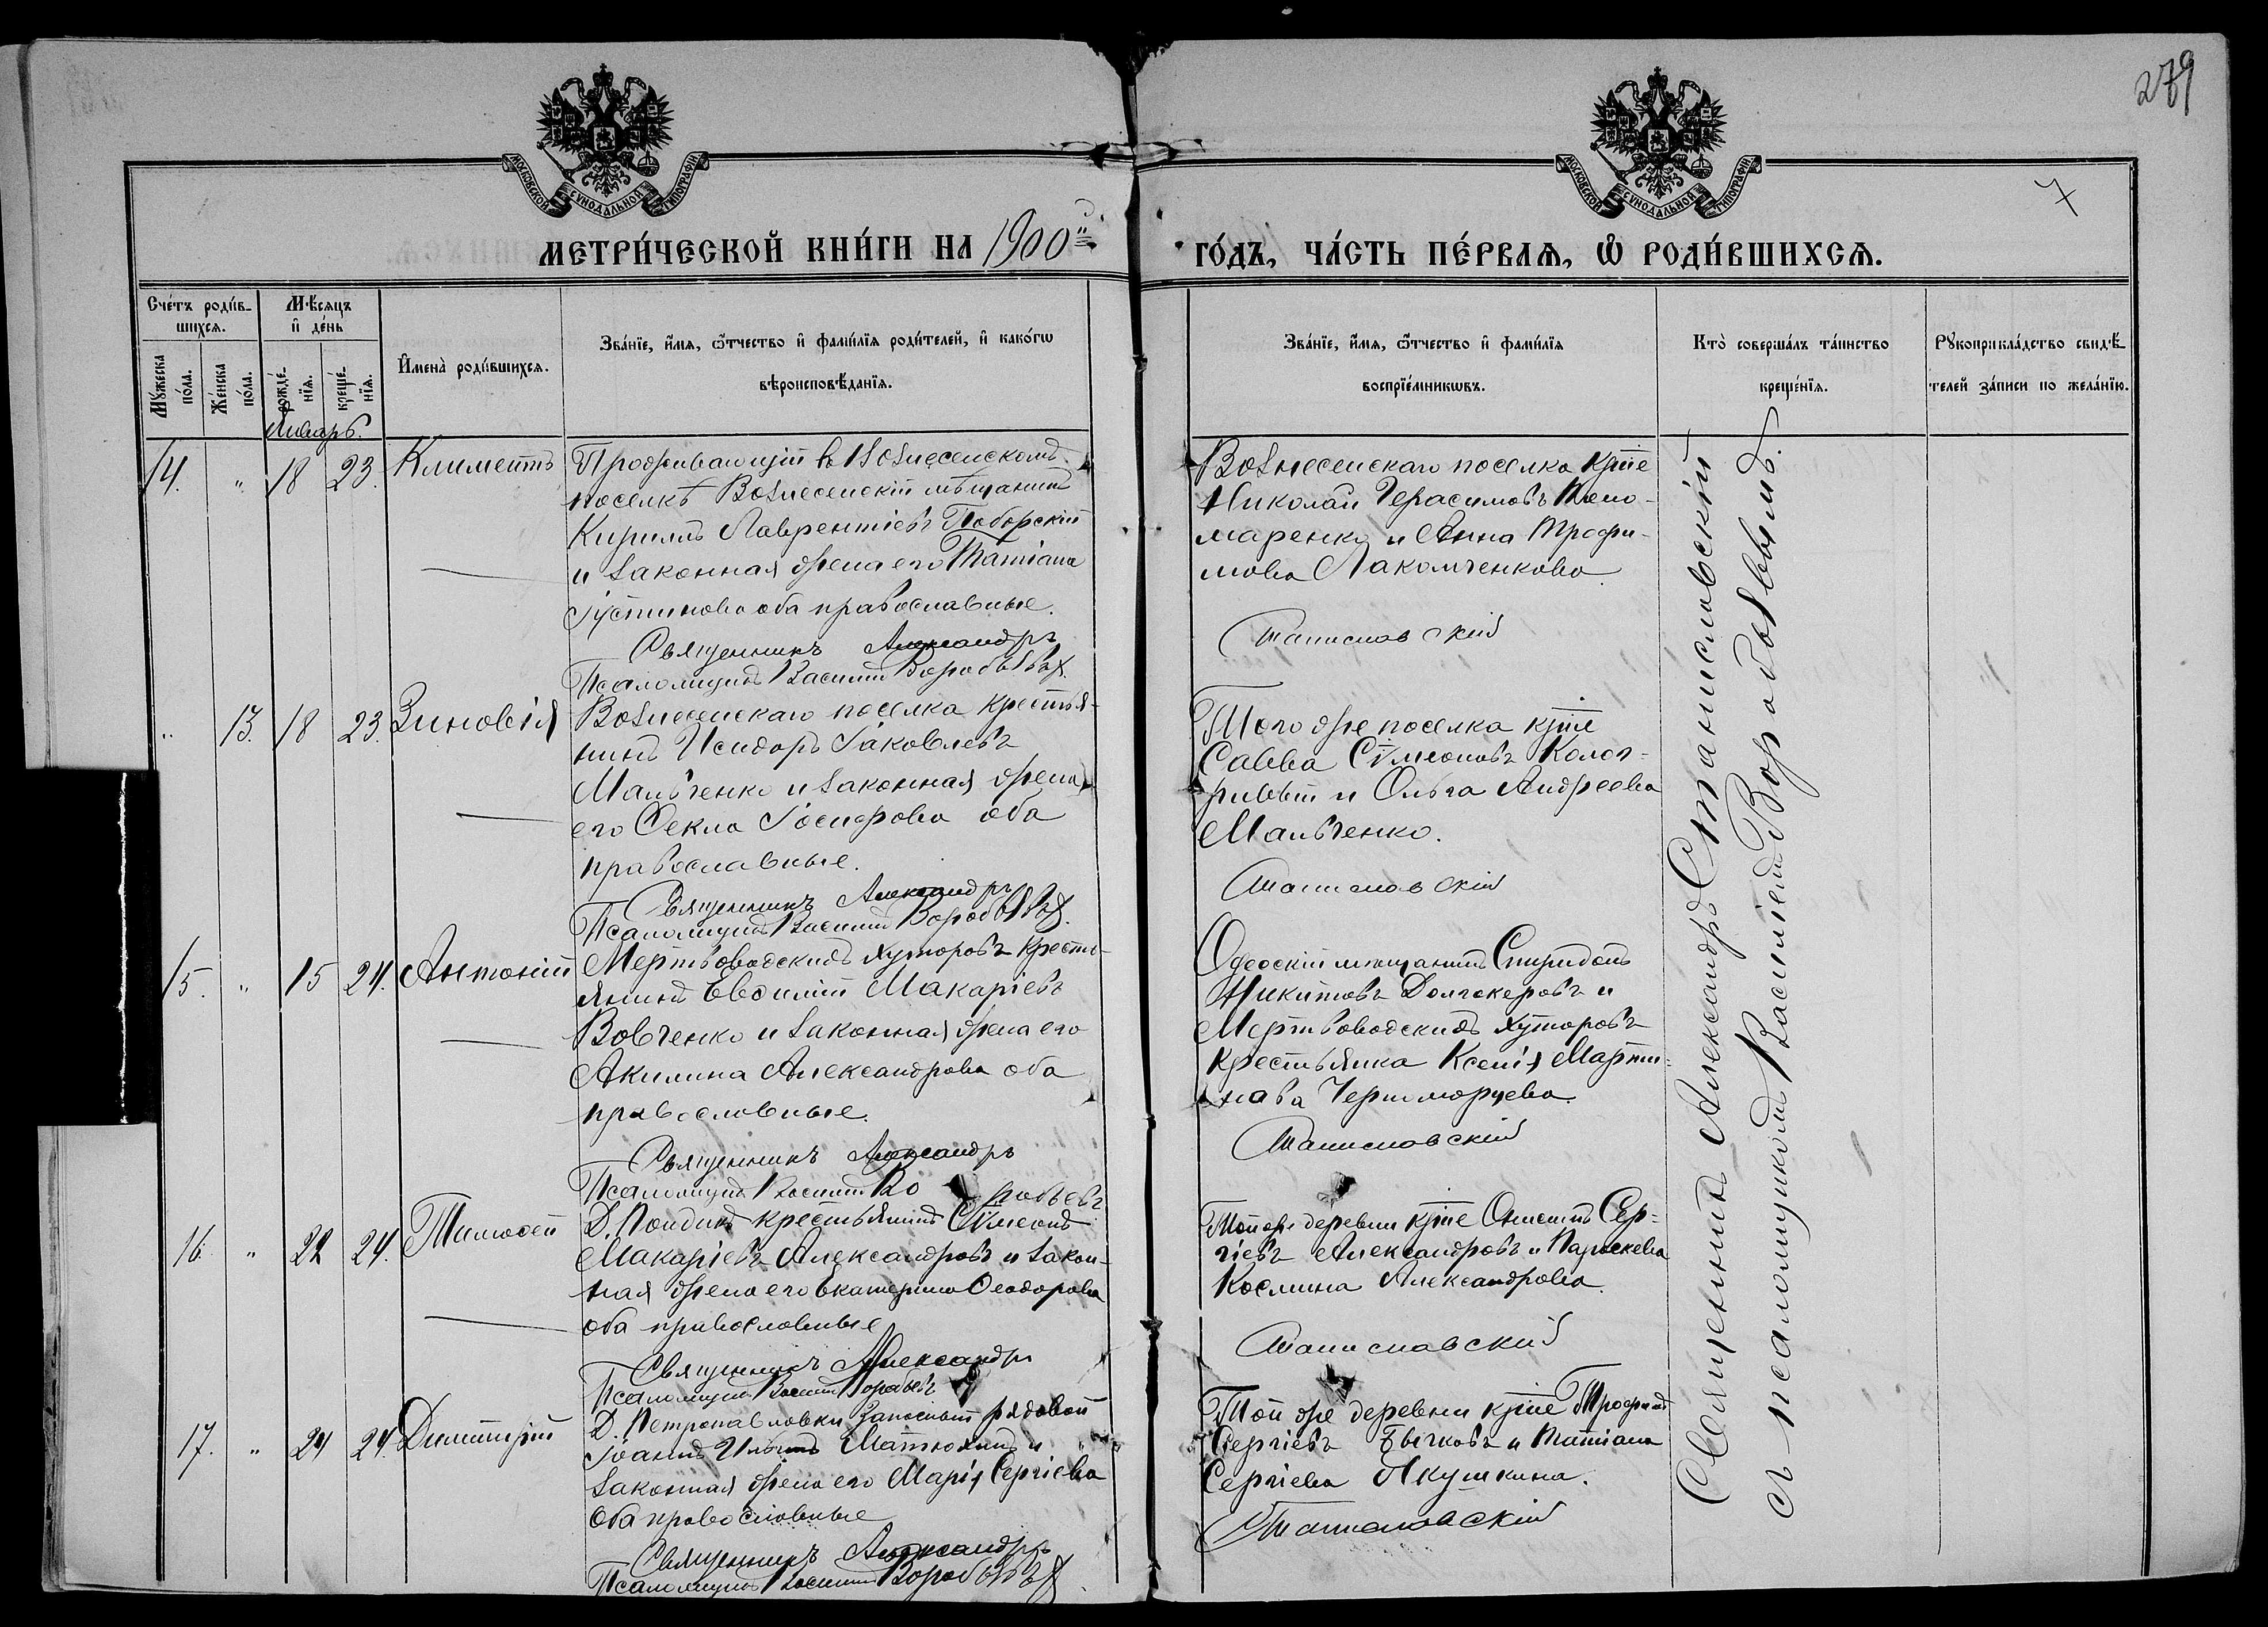 279
7
МОСКОВСКОЙ СѴНОДАЛЬНОЙ ТИПОГРАФІИ
МОСКОВСКОЙ СѴНОДАЛЬНОЙ ТИПОГРАФІИ
МЕТРИ́ЧЕСКОЙ КНИ́ГИ НА 1900й
ГО́ДЪ, ЧА́СТЬ ПЕ́РВАѦ, Ѡ҆ РОДИ́ВШИХСѦ.
Сче́тъ роди́в-
шихсѧ.
Мꙋ́жеска по́ла.
Же́нска по́ла.
Мѣ́сѧцъ
и҆ де́нь
рожде́-
нїѧ.
креще́-
нїѧ.
Январь.
И҆мена̀ роди́вшихсѧ.
Зва́нїе, и҆́мѧ, ѻ҆́тчество и҆ фами́лїѧ роди́телей, и҆ како́гѡ
вѣроисповѣ́данїѧ.
Зва́нїе, и҆́мѧ, ѻ҆́тчество и҆ фами́лїѧ
воспрїе́мникѡвъ.
Кто̀ соверша́лъ та́инство
креще́нїѧ.
Рꙋкоприкла́дство свидѣ́-
телей за́писи по жела́нїю.
14. " 18 23. Климентъ
Проживающій въ Вознесенскомъ
поселкѣ Вознесенскій мѣщанинъ
Кириллъ Лаврентіевъ Поборскій
и законная жена его Татіана
Іустинова оба православные.
Священникъ Александръ
Псаломщикъ Василій Воробьевъ
Вознесенскаго поселка кр̅не
Николай Герасимовъ Поно-
маренко и Анна Трофи-
мова Лакомченкова
Станиславскій
" 13. 18 23. Зиновія
Вознесенскаго поселка крестья-
нинъ Исидоръ Іаковлевъ
Мальченко и законная жена
его Ѳекла Іосифова оба
православные.
Священникъ Александръ
Псаломщикъ Василій Воробьевъ
Того же поселка кр̅не
Савва Сѵмеоновъ
и Ольга Андреева
Мальченко.
Станиславскій
15. " 15 24. Антоній
Мертвоводскихъ хуторовъ кресть-
янинъ Евѳимій Макаріевъ
Вовченко и законная жена его
Акилина Александрова оба
православные.
Священникъ Александръ
Псаломщикъ Василій Воробьевъ
Одесскій мѣщанинъ Спиридонъ
Никитовъ Долгокеровъ и
Мертвоводскихъ хуторовъ
крестьянка Ксенія Марти-
нова Черноморцева.
Станиславскій
16. " 22 24. Тимоѳей
Д. крестьянинъ Сѵмеонъ
Макаріевъ Александровъ и закон-
ная жена его Екатерина Ѳеодорова
оба православные
Священникъ Александръ
Псаломщикъ Василій Воробьевъ
Той же деревни кр̅не Онисимъ Сер-
гіевъ Александровъ и Параскева
Космина Александрова.
Станиславскій
17. " 24 24. Димитрій
Д. Петропавловки запасный рядовой
Іоаннъ Ильинъ Матюхинъ и
законная жена его Марія Сергіева
оба православные
Священникъ Александръ
Псаломщикъ Василій Воробьевъ
Той же деревни кр̅не Трофимъ
Сергіевъ Бычковъ и Татіана
Сергіева Якушкина.
Станиславскій
Священникъ Александръ Станиславскій
съ псаломщикомъ Василіемъ Воробьевымъ.